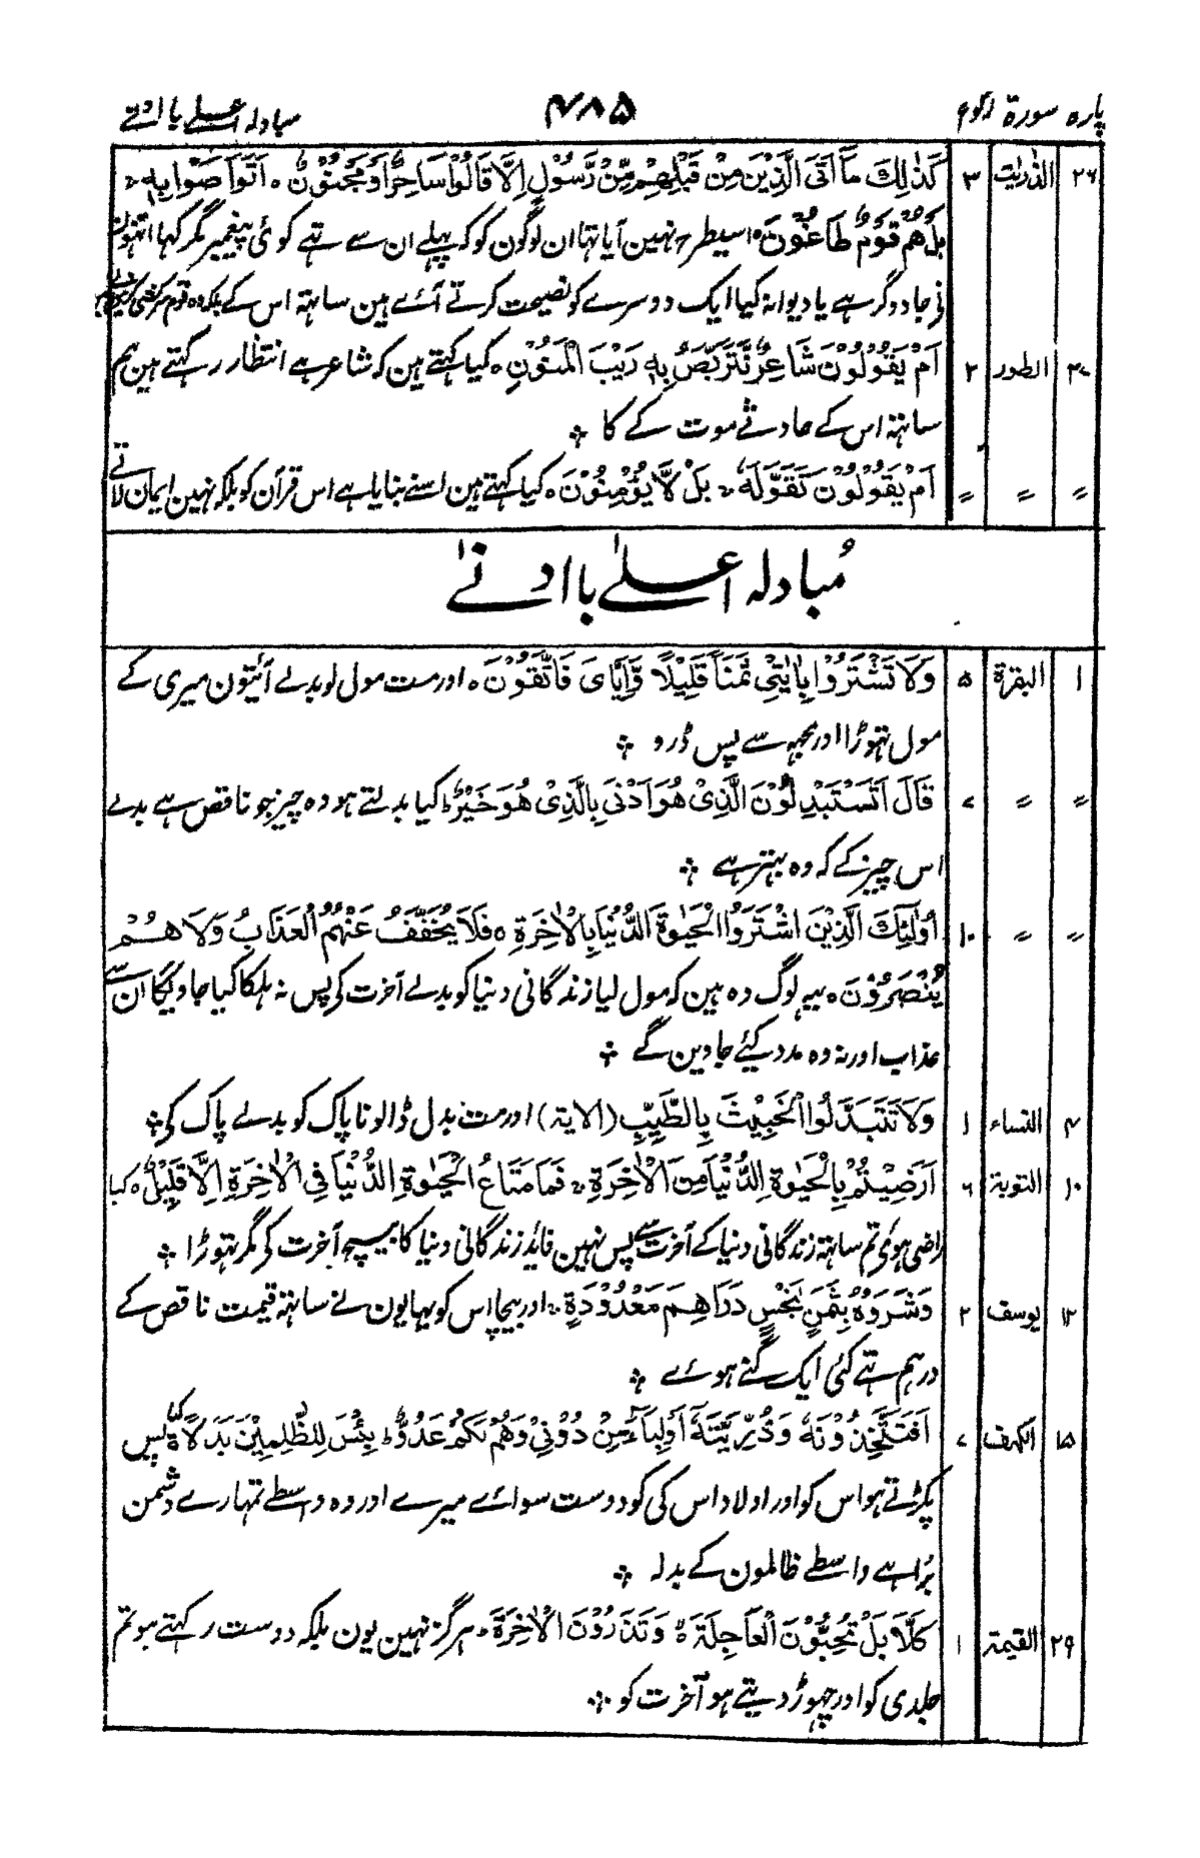 پارہ سورۃ رکوع ۴۸۵ مبادلہ اعلےٰ با ادنےٰ
۲۶ الذٰریٰت ۳ كَذٰلِكَ مَآ اَتَى الَّذِيْنَ مِنْ قَبْلِهِمْ مِّنْ رَّسُوْلٍ اِلَّا قَالُوْا سَاحِرٌ اَوْ مَجْنُوْنٌ ۝ اَتَوَاصَوْا بِهٖ ۚ
بَلْ هُمْ قَوْمٌ طَاغُوْنَ ۝ اسیطرح نہین آیا تہا ان لوگون کو کہ پہلے ان سے تہے کوئی پیغمبر مگر کہا انہون
نے جادوگر ہے یا دیوانہ کیا ایک دوسرے کو نصیحت کرتے آئے ہین ساتہہ اس کے بلکہ وہ قوم
۲۷ الطور ۲ اَمْ يَقُوْلُوْنَ شَاعِرٌ نَّتَرَبَّصُ بِهٖ رَيْبَ الْمَنُوْنِ ۝ کیا کہتے ہین کہ شاعر ہے انتظار رکہتے ہین ہم
ساتہہ اس کے حادثے موت کے کا ؞
〃 〃 〃 اَمْ يَقُوْلُوْنَ تَقَوَّلَهٗ ۚ بَلْ لَّا يُؤْمِنُوْنَ ۝ کیا کہتے ہین اسنے بنایا ہے اس قرآن کو بلکہ نہین ایمان لاتے
مُبادلہ اعلےٰ با ادنےٰ
۱ البقرۃ ۵ وَلَا تَشْتَرُوْا بِاٰيٰتِيْ ثَمَنًا قَلِيْلًا وَّاِيَّايَ فَاتَّقُوْنِ ۝ اور مت مول لو بدلے آیتون میری کے
مول تہوڑا اور مجہہ سے پس ڈرو ؞
〃 〃 ۷ قَالَ اَتَسْتَبْدِلُوْنَ الَّذِيْ هُوَ اَدْنٰى بِالَّذِيْ هُوَ خَيْرٌ ؕ کیا بدلتے ہو وہ چیز جو ناقص ہے بدلے
اس چیز کے کہ وہ بہتر ہے ؞
〃 〃 ۱۰ اُولٰٓئِكَ الَّذِيْنَ اشْتَرَوُا الْحَيٰوةَ الدُّنْيَا بِالْاٰخِرَةِ ۝ فَلَا يُخَفَّفُ عَنْهُمُ الْعَذَابُ وَلَا هُمْ
يُنْصَرُوْنَ ۝ یہہ لوگ وہ ہین کہ مول لیا زندگانی دنیا کو بدلے آخرت کے پس نہ ہلکا کیا جاویگا ان سے
عذاب اور نہ وہ مدد کئے جاوین گے ؞
۴ النساء ۱ وَلَا تَتَبَدَّلُوا الْخَبِيْثَ بِالطَّيِّبِ (الایۃ) اور مت بدل ڈالو ناپاک کو بدلے پاک کے ؞
۱۰ التوبۃ ۶ اَرَضِيْتُمْ بِالْحَيٰوةِ الدُّنْيَا مِنَ الْاٰخِرَةِ ۚ فَمَا مَتَاعُ الْحَيٰوةِ الدُّنْيَا فِي الْاٰخِرَةِ اِلَّا قَلِيْلٌ ۝ کیا
راضی ہوئے تم ساتہہ زندگانی دنیا کے آخرت سے پس نہین فایدہ زندگانی دنیا کا بیچ آخرت کے مگر تہوڑا ؞
۱۲ یوسف ۲ وَشَرَوْهُ بِثَمَنٍ بَخْسٍ دَرَاهِمَ مَعْدُوْدَةٍ ۚ اور بیچا اس کو بہایون نے ساتہہ قیمت ناقص کے
درہم تہے کئی ایک گنے ہوئے ؞
۱۵ الکہف ۷ اَفَتَتَّخِذُوْنَهٗ وَذُرِّيَّتَهٗٓ اَوْلِيَآءَ مِنْ دُوْنِيْ وَهُمْ لَكُمْ عَدُوٌّ ؕ بِئْسَ لِلظّٰلِمِيْنَ بَدَلًا ۝ کیا پس
پکڑتے ہو اس کو اور اولاد اس کی کو دوست سوائے میرے اور وہ واسطے تمہارے دشمن
بُرا ہے واسطے ظالمون کے بدلہ ؞
۲۹ القیمۃ ۱ كَلَّا بَلْ تُحِبُّوْنَ الْعَاجِلَةَ ۝ وَتَذَرُوْنَ الْاٰخِرَةَ ۝ ہرگز نہین یون بلکہ دوست رکہتے ہو تم
جلدی کو اور چہوڑ دیتے ہو آخرت کو ؞